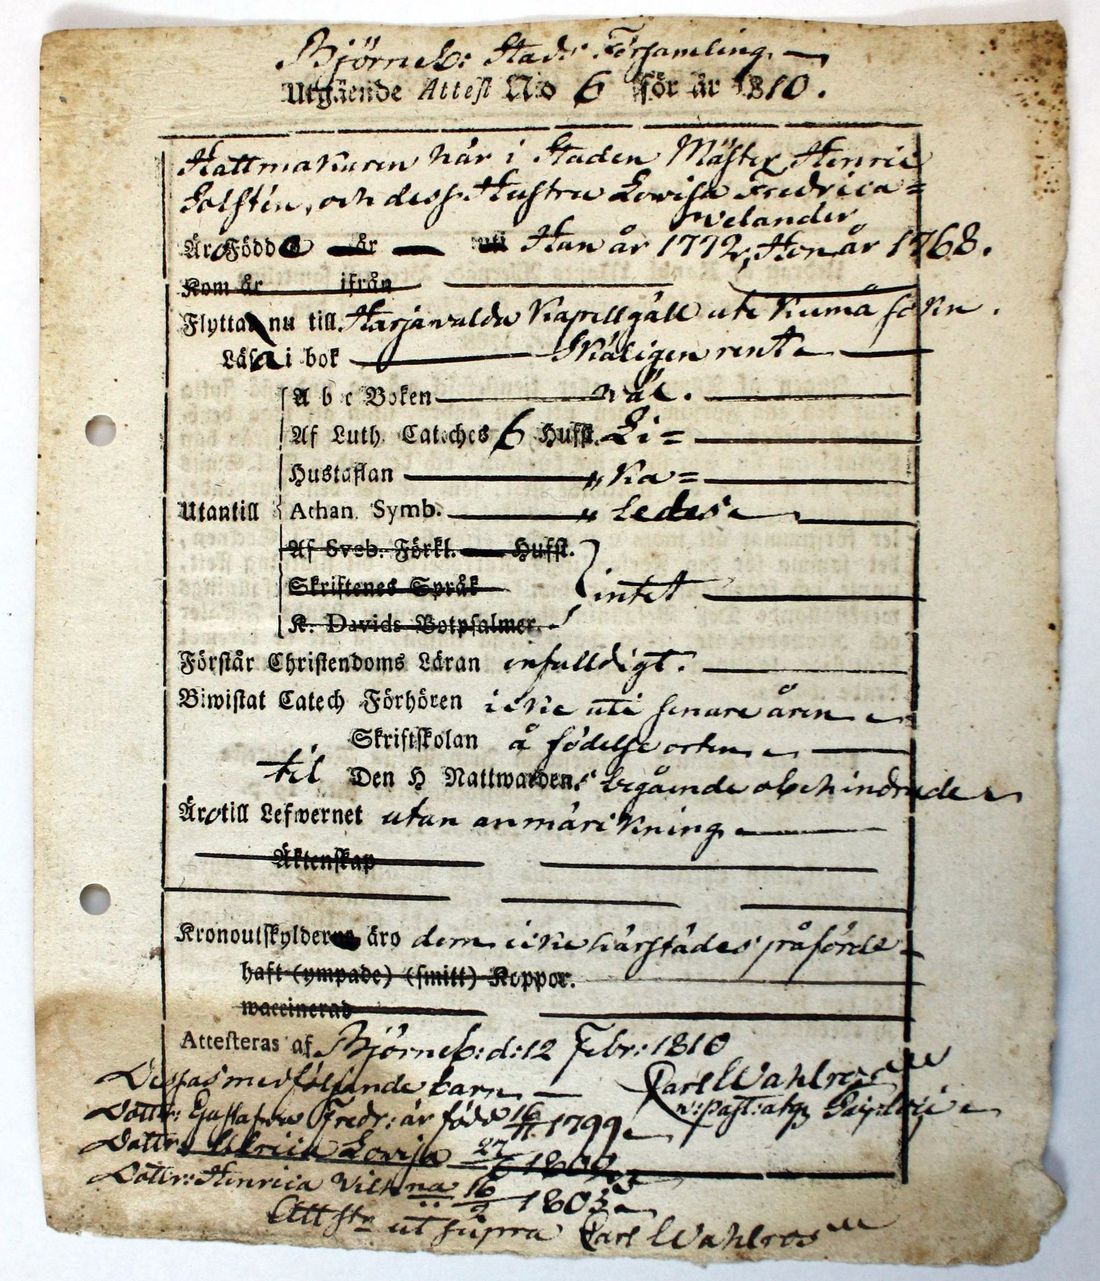 Björneb: Stads Församling
Utgående Attest No 6 för år 1810.
Hattmakaren här i Staden Mäster Henric
Golstén, och dess Hustru Lowisa Fredrica
Welander
Äro Född år Han år 1772, Hon år 1768.
Kom år ifrån
Flytta nu till Harjawalda Kapellgäll uti Kumå sokn.
Läsa i bok Skäligen rent
A b c Boken wäl.
Af Luth. Cateches 6 Hufst. Li=
Hustaflan " ka=
Utantill Athan. Symb. " Ledes
Af Sveb. Förkl. Hufst.
Skriftenes Språk intet
K. Davids Botpsalmer.
Förstår Christendoms Läran enfalldigt.
Biwistat Catech Förhören icke uti senare åren
Skriftskolan å födelse orten
til Den H Nattwardens begående obehindrade
Äro till Lefwernet utan anmärkning
Äktenskap
Kronoutskylderna äro dem icke härstädes påförde
haft (ympade) (smitt) Koppor.
waccinerad
Attesteras af Björneb: d: 12 Febr: 1810
Dessas medföljande barn Carl Wahlroos
Dottr: Gustafva Fredr: är född 16/11 1799 v: past: atqz
Dottr: Ulrica Lowisa
Dottr: Henrica Vilhna 16/9 1803
Att sto ut supra Carl Wahlroos